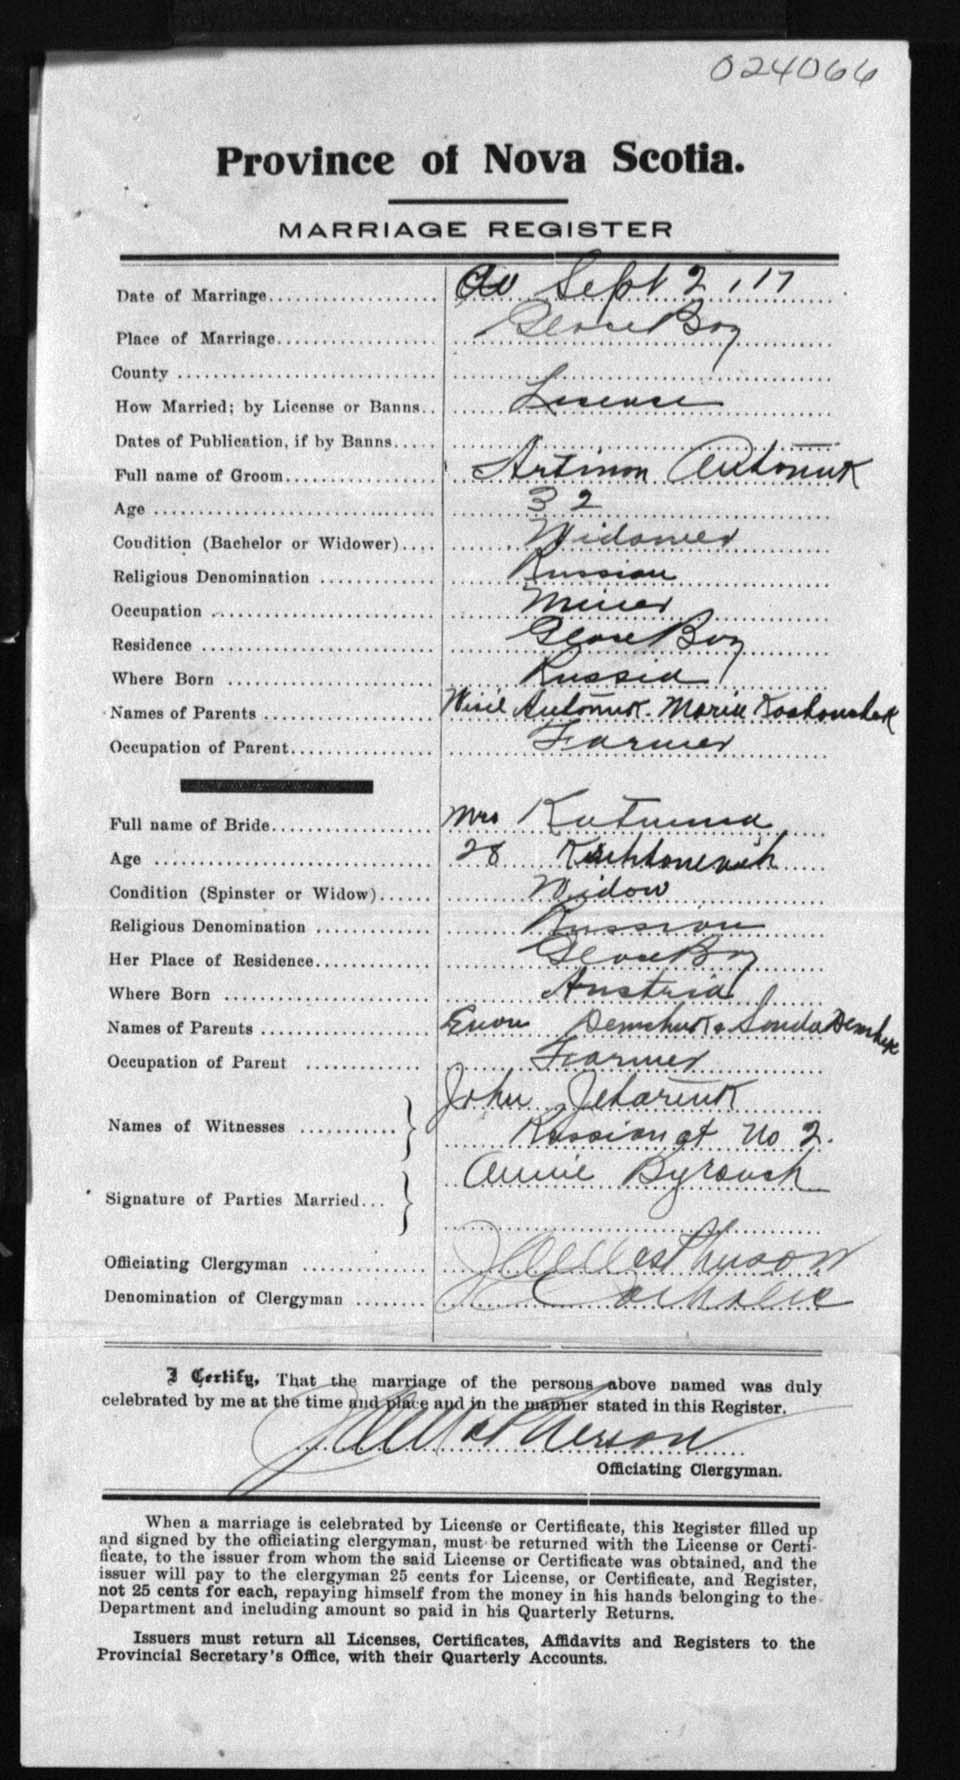 024066
Province of Nova Scotia.
MARRIAGE REGISTER
Date of Marriage Sept 2, 17
Place of Marriage Glace Bay
County
How Married; by License or Banns.. License
Dates of Publication, if by Banns
Full name of Groom Artimon Antoniuk
Age 32
Condition (Bachelor or Widower) Widower
Religious Denomination Russian
Occupation Miner
Residence Glace Bay
Where Born Russia
Names of Parents Antoniuk. Maria
Occupation of Parent Farmer
Full name of Bride Mrs Katrina
Age 28
Condition (Spinster or Widow) Widow
Religious Denomination Russian
Her Place of Residence Glace Bay
Where Born Austria
Names of Parents Demchuk &
Occupation of Parent Farmer
John
Names of Witnesses
Russian at No 2.
Annie
Signature of Parties Married...
Officiating Clergyman
Denomination of Clergyman Catholic
I Certify, That the marriage of the persons above named was duly
celebrated by me at the time and place and in the manner stated in this Register.
Officiating Clergyman.
When a marriage is celebrated by License or Certificate, this Register filled up
and signed by the officiating clergyman, must be returned with the License or Certi-
ficate, to the issuer from whom the said License or Certificate was obtained, and the
issuer will pay to the clergyman 25 cents for License, or Certificate, and Register,
not 25 cents for each, repaying himself from the money in his hands belonging to the
Department and including amount so paid in his Quarterly Returns.
Issuers must return all Licenses, Certificates, Affidavits and Registers to the
Provincial Secretary's Office, with their Quarterly Accounts.